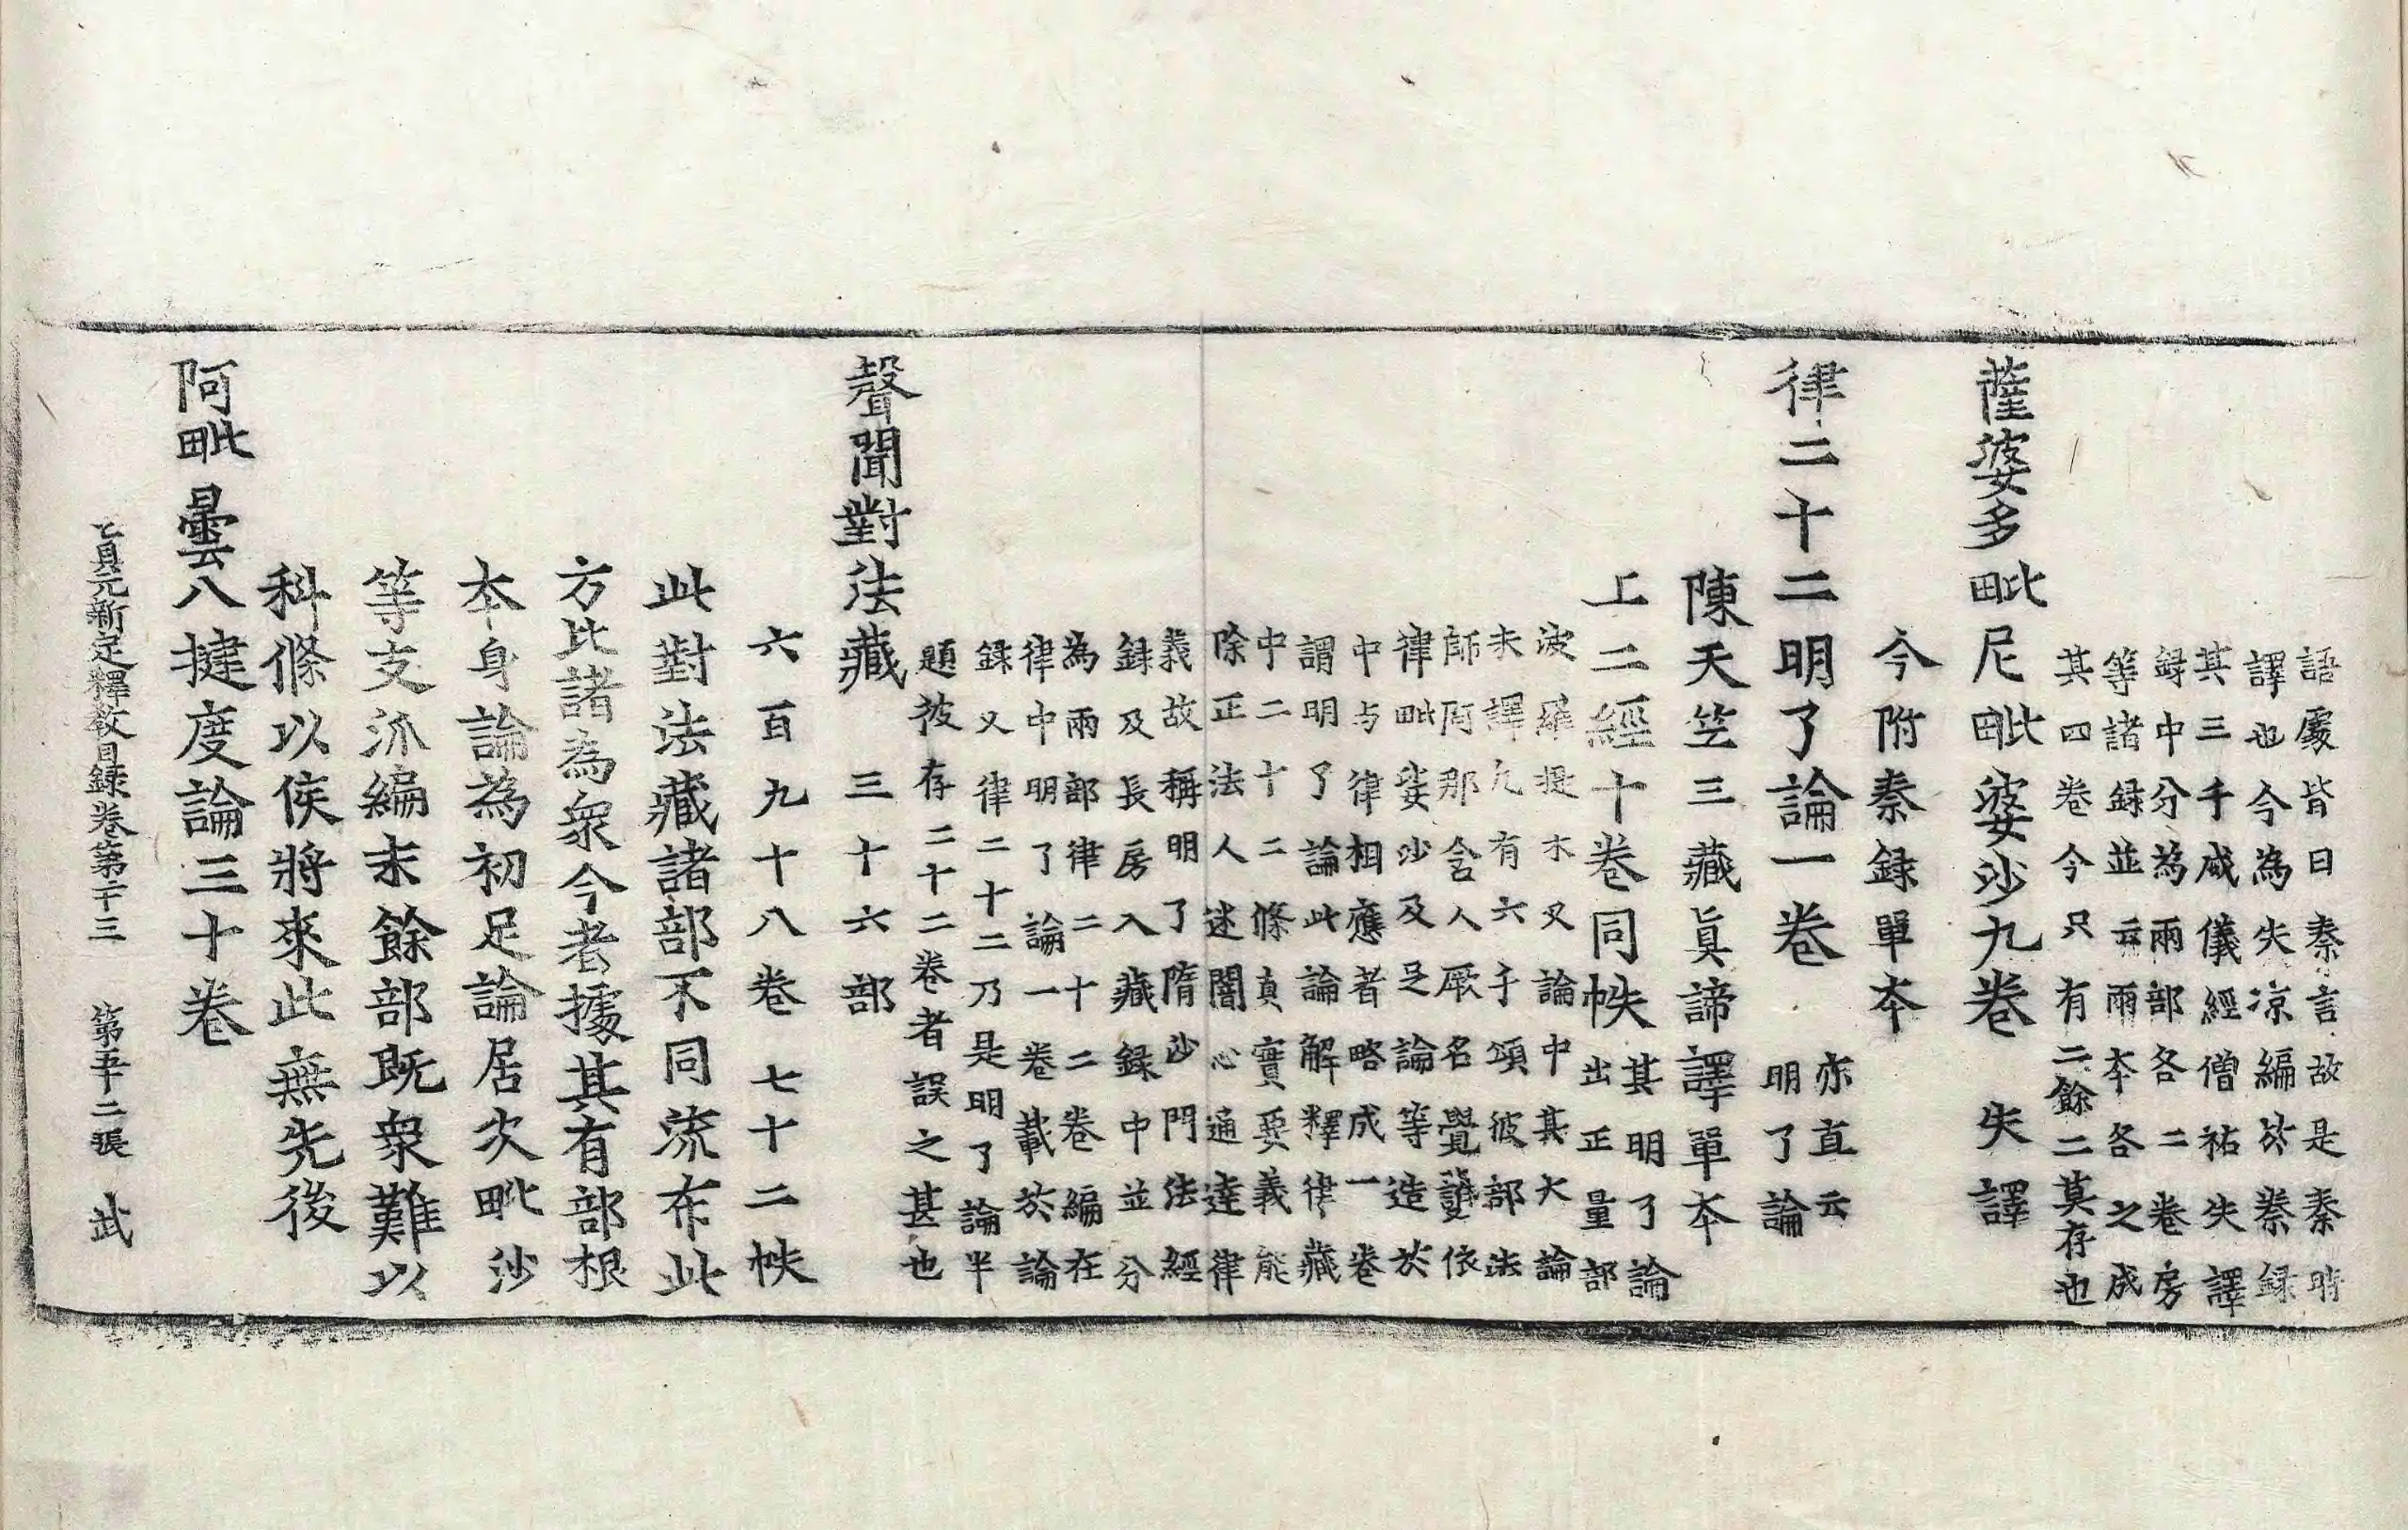 語處皆曰秦言故是秦時
譯也今為失涼編於秦録
其三千威儀經僧祐失譯
録中分為兩部各二卷房
等諸録並云兩本各二之成
其四卷今只有二餘二莫存也
薩婆多毗尼毗婆沙九卷 失譯
今附秦録單本
律二十二明了論一卷 亦直云
明了論
陳天竺三藏真諦譯單本
上二經十卷同帙 其明了論
出正量部
波羅提木叉論中其大論
未譯凢有六千頌彼部法
師阿那含人厥名覺護依
律毗婆沙及足論等造於
中与律相應者略成一卷
謂明了論此論解釋律藏
中二十二條真實要義能
除正法人迷闇心通達律
義故稱明了隋沙門法經
録及長房入藏録中並分
為兩部律二十二卷編在
律中明了論一卷載於論
録又律二十二乃是明了論半
題彼存二十二卷者誤之甚也
聲聞對法藏 三十六部
六百九十八卷 七十二帙
此對法藏諸部不同流布此
方比諸為衆今者據其有部根
本身論為初足論居次毗沙
等支派編末餘部既衆難以
科條以俟將來此無先後
阿毗曇八揵度論三十卷
貞元新定釋教目録卷第二十三 第五十二張 武